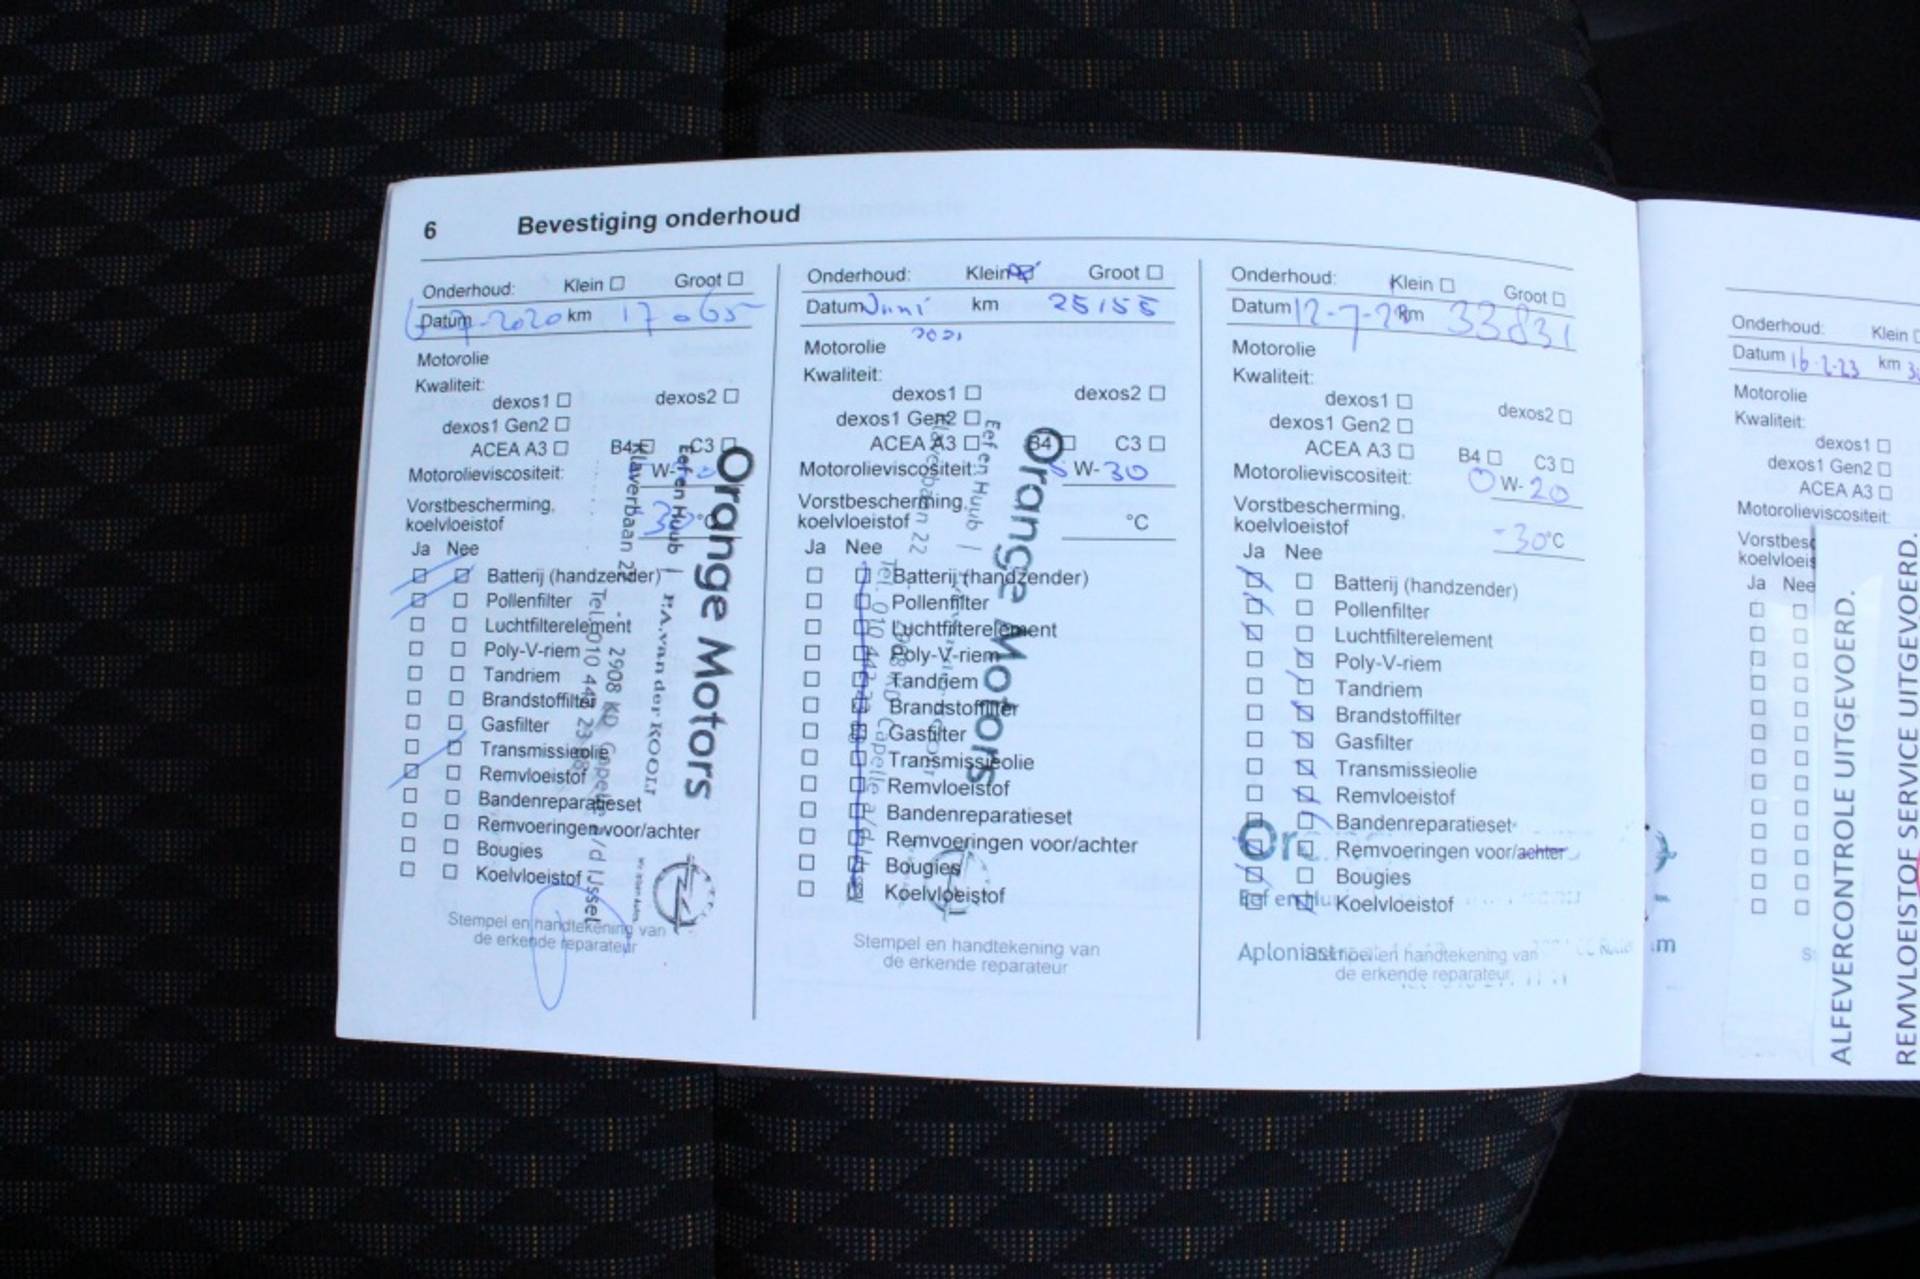 6 Bevestiging onderhoud
Onderhoud: Klein Groot
Datum 2020 km 17065
Motorolie
Kwaliteit:
dexos1 dexos2
dexos1 Gen2
ACEA A3 B4 C3
Motorolieviscositeit: W-
Vorstbescherming,
koelvloeistof
Ja Nee
Batterij (handzender)
Pollenfilter
Luchtfilterelement
Poly-V-riem
Tandriem
Brandstoffilter
Gasfilter
Transmissieolie
Remvloeistof
Bandenreparatieset
Remvoeringen voor/achter
Bougies
Koelvloeistof
Stempel en handtekening van
de erkende reparateur
Orange Motors
Eef en Huub |
Klaverbaan 22
2908 KD Capelle a/d IJssel
Onderhoud: Klein Groot
Datum Juni km 25155
2021
Motorolie
Kwaliteit:
dexos1 dexos2
dexos1 Gen2
ACEA A3 B4 C3
Motorolieviscositeit: W-30
Vorstbescherming,
koelvloeistof °C
Ja Nee
Batterij (handzender)
Pollenfilter
Luchtfilterelement
Poly-V-riem
Tandriem
Brandstoffilter
Gasfilter
Transmissieolie
Remvloeistof
Bandenreparatieset
Remvoeringen voor/achter
Bougies
Koelvloeistof
Stempel en handtekening van
de erkende reparateur
Orange Motors
Eef en Huub |
Onderhoud: Klein Groot
Datum 12-7- km 33831
Motorolie
Kwaliteit:
dexos1 dexos2
dexos1 Gen2
ACEA A3 B4 C3
Motorolieviscositeit: 0 W-20
Vorstbescherming,
koelvloeistof -30°C
Ja Nee
Batterij (handzender)
Pollenfilter
Luchtfilterelement
Poly-V-riem
Tandriem
Brandstoffilter
Gasfilter
Transmissieolie
Remvloeistof
Bandenreparatieset
Remvoeringen voor/achter
Bougies
Koelvloeistof
handtekening van
de erkende reparateur
Onderhoud: Klein
Datum 16-2-23 km
Motorolie
Kwaliteit:
dexos1
dexos1 Gen2
ACEA A3
Motorolieviscositeit:
Ja Nee
ALFEVERCONTROLE UITGEVOERD.
REMVLOEISTOF SERVICE UITGEVOERD.